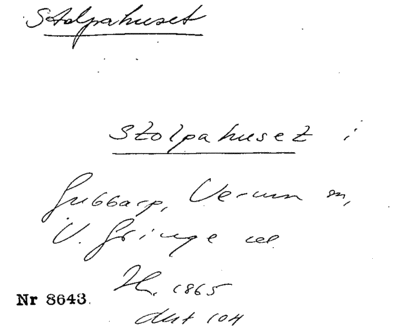 Stolpahuset
Stolpahuset i
Gubbarp, Verum sn,
V. Göinge
1865
Nr 8643.
104